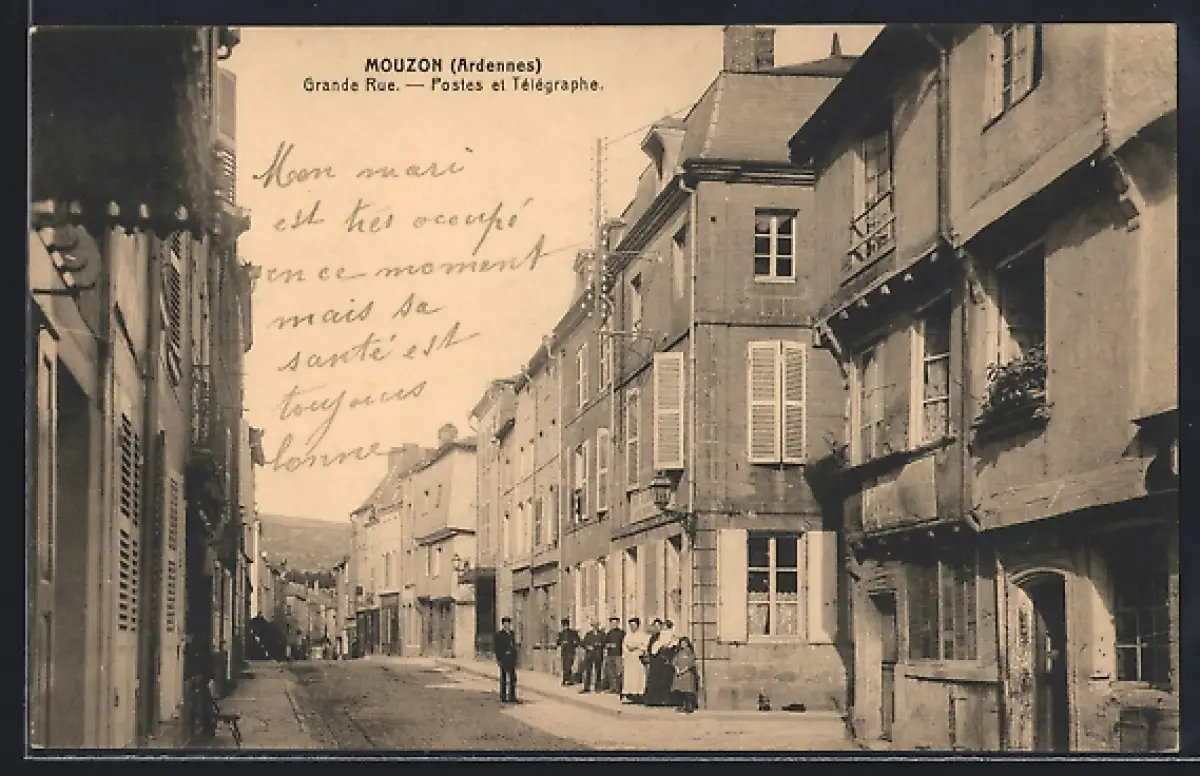 MOUZON (Ardennes)
Grande Rue. — Postes et Télégraphe.
Mon mari
est très occupé
en ce moment
mais sa
santé est
toujours
bonne